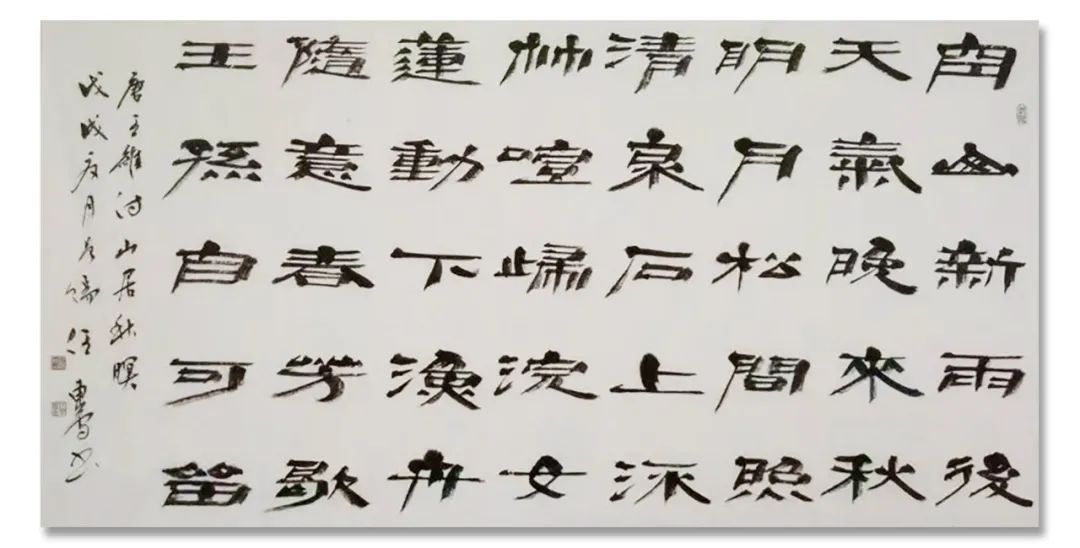 空山新雨後
天氣晚來秋
明月松間照
清泉石上流
竹喧歸浣女
蓮動下漁舟
隨意春芳歇
王孫自可留
唐王維詩山居秋暝
戊戌夏月 任 書